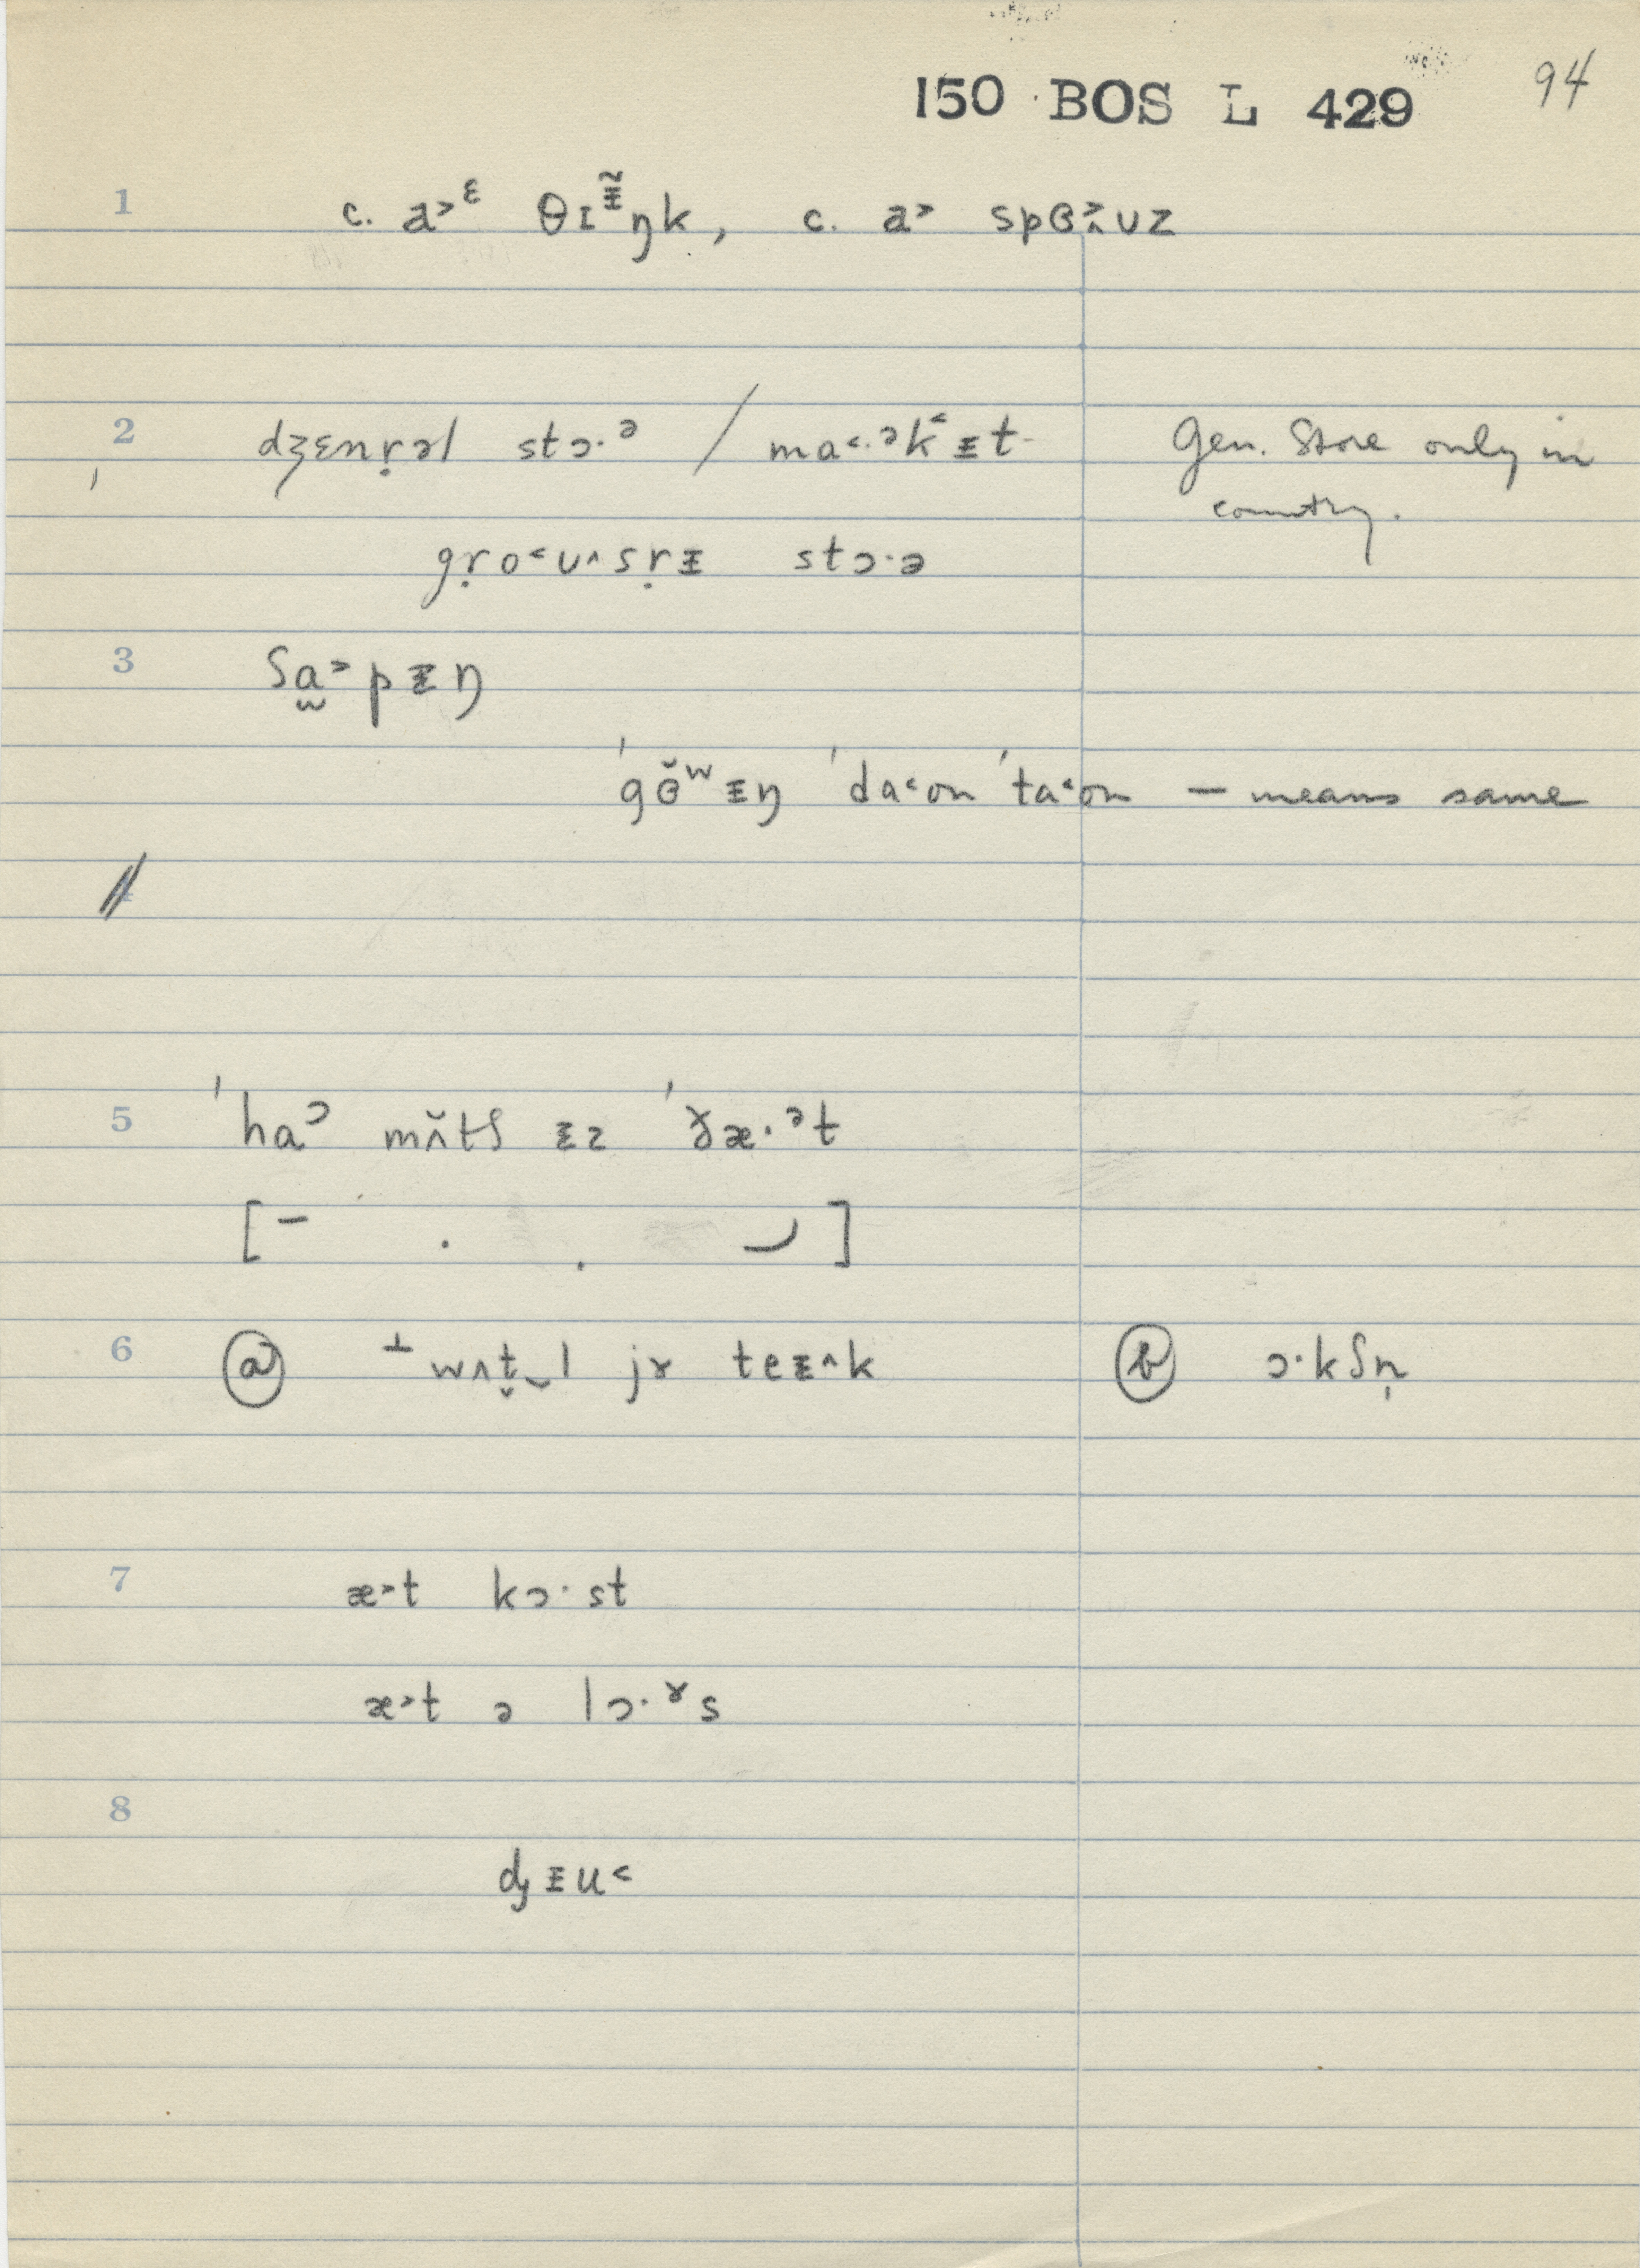 150 BOS L 429 94
1 c. a˃ᵋ θɪᵻ̃ŋk, c. a˃ spɵ˃ʌʊz
2 dʒɛnṛəl stɔ·ᵊ / ma˂·ᵊk˂ᵻt Gen. Store only in
country.
gṛo˂ʊ^sṛᵻ stɔ·ə
3 ʃa̫˃pᵻŋ
ˈgɵ̆ʷᵻŋ ˈda˂ʊn ˈta˂ʊn — means same
4
5 ˈhaᵓ mʌ̆tʃ ᵻz ˈðæ·ᵊt
[ – · . ⌣ ]
6 ⓐ ┴ wʌt̬‿l jɤ teᵻ^k ⓑ ɔ·kʃn̩
7 æ˃t kɔ·st
æ˃t ə lɔ·ˠs
8
dʒᵻu˂